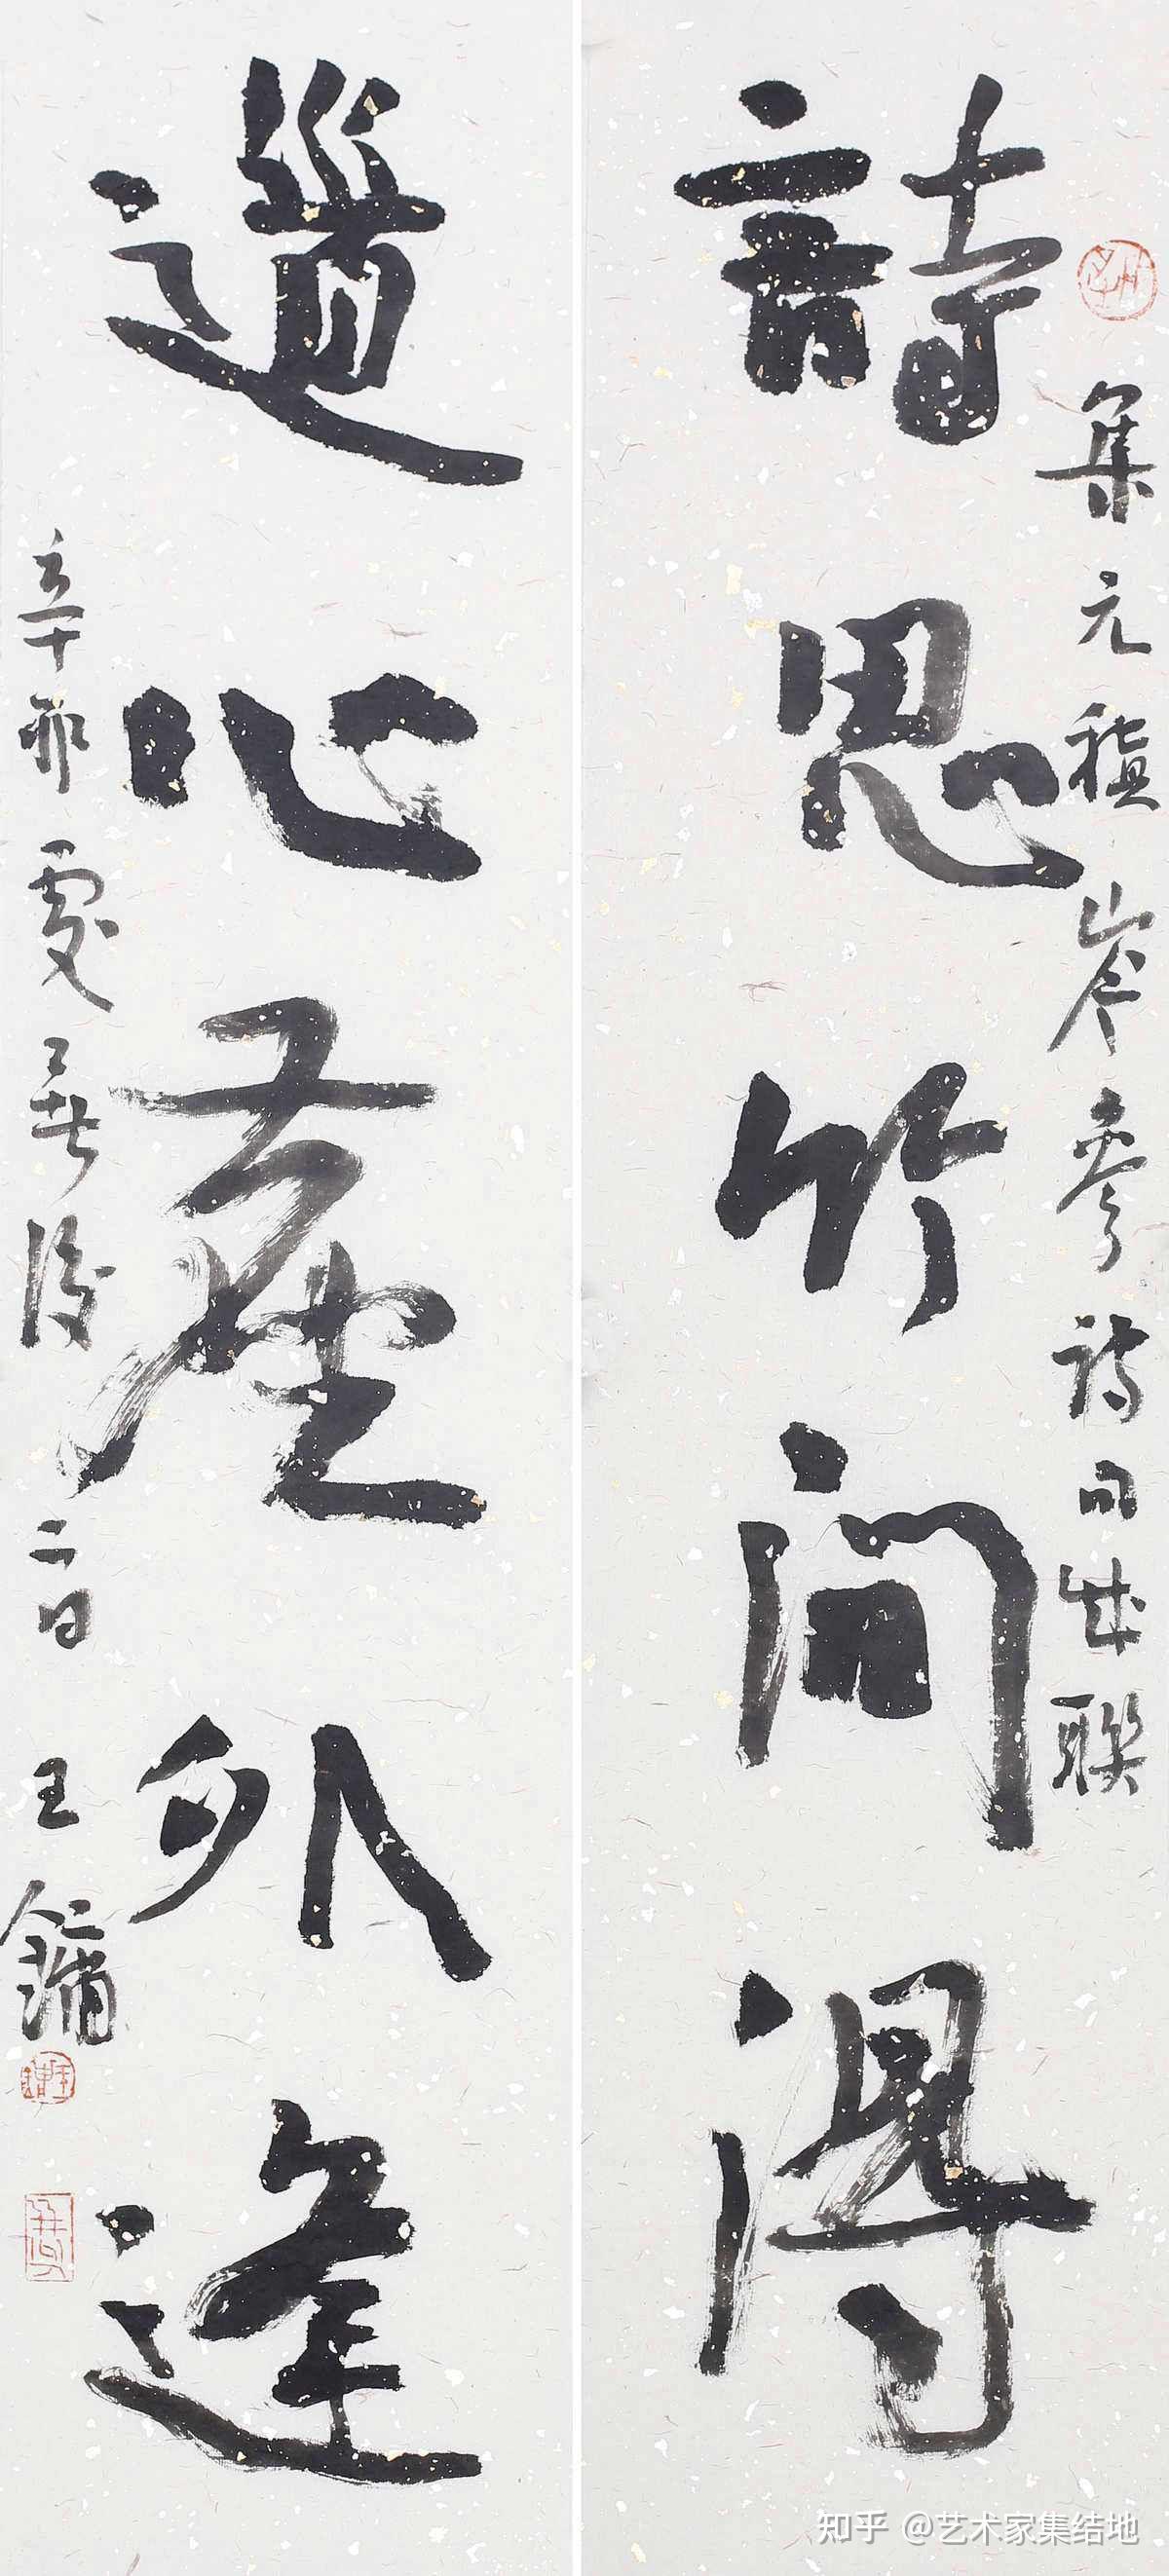 集元稹岑參诗句成聯
詩思竹間得
道心塵外逢
辛卯處暑後二日 王鏞
知乎 @艺术家集结地